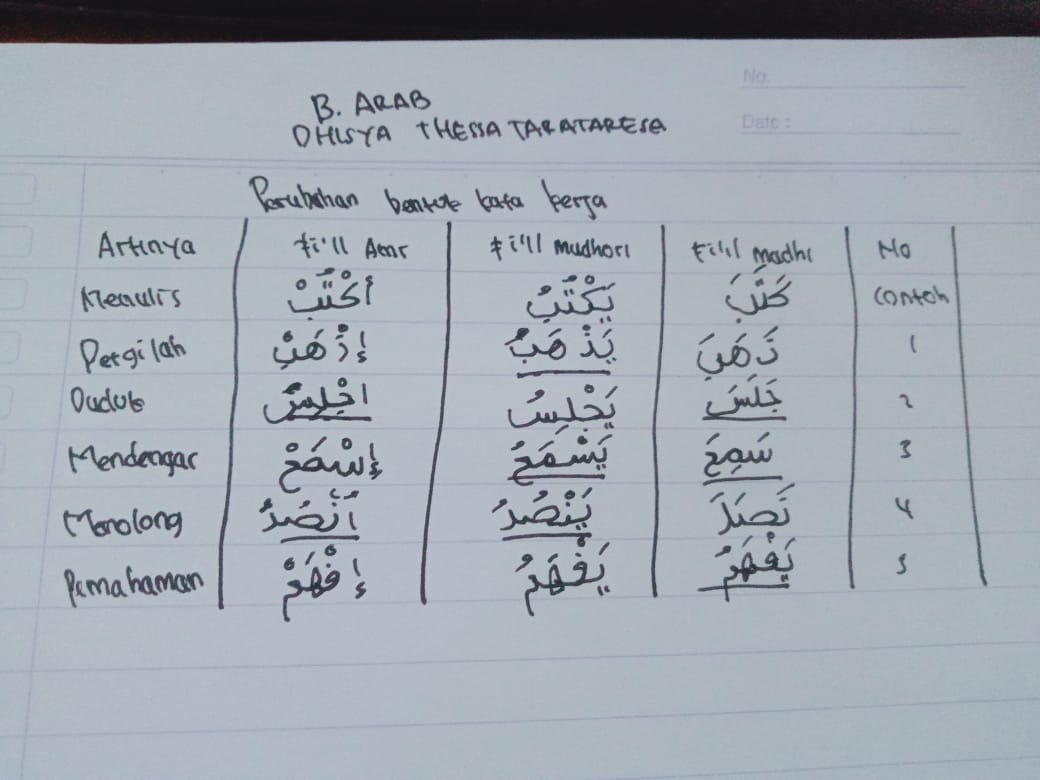 No.
Date :
B. ARAB
DHISYA THESSA TARATARESA
Perubahan bentuk kata kerja
Artinya fi'il Amr fi'il Mudhori fi'il Madhi No
Menulis أكْتُبْ يَكْتُبُ كَتَبَ Contoh
Pergilah إذْهَبْ يَذْهَبُ ذَهَبَ 1
Duduk اجْلِسْ يَجْلِسُ جَلَسَ 2
Mendengar إسْمَعْ يَسْمَعُ سَمِعَ 3
Menolong أنْصُرْ يَنْصُرُ نَصَرَ 4
Pemahaman إفْهَمْ يَفْهَمُ يَفْهَمُ 5